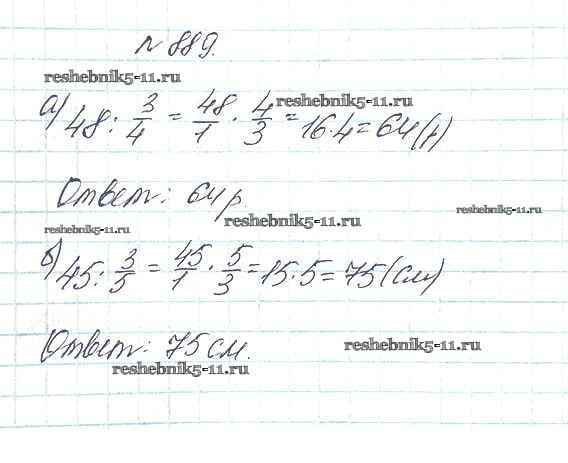 № 889.
reshebnik5-11.ru
а) 48 : 3/4 = 48/1 · 4/3 = 16·4 = 64 (р)
reshebnik5-11.ru
Ответ: 64 р.
reshebnik5-11.ru
reshebnik5-11.ru
reshebnik5-11.ru
б) 45 : 3/5 = 45/1 · 5/3 = 15·5 = 75 (см)
Ответ: 75 см.
reshebnik5-11.ru
reshebnik5-11.ru